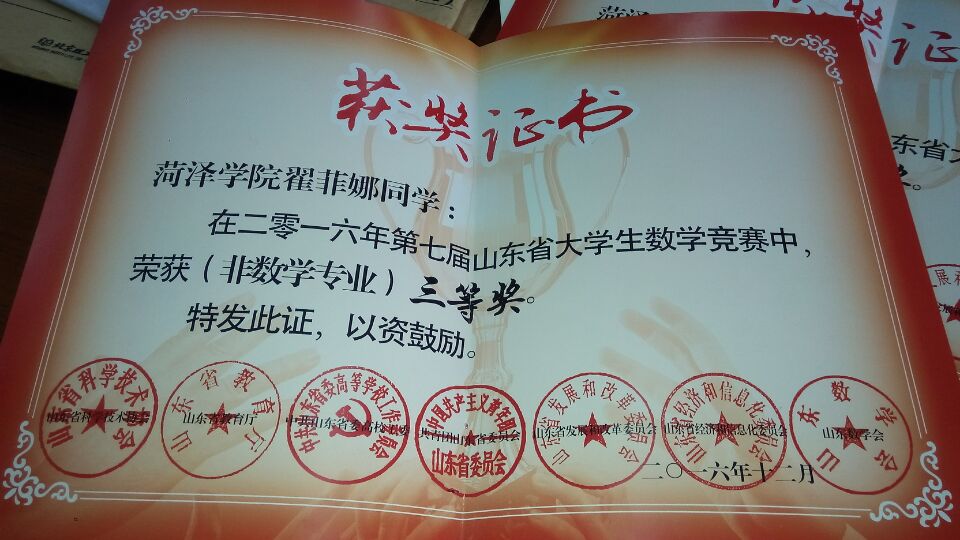 获奖证书
菏泽学院翟菲娜同学：
在二零一六年第七届山东省大学生数学竞赛中，
荣获（非数学专业）三等奖。
特发此证，以资鼓励。
山东省科学技术协会
山东省教育厅
中共山东省委高校工委
共青团山东省委员会
山东省发展和改革委员会
山东省经济和信息化委员会
山东数学会
山东省科学技术协会
山东省教育厅
中共山东省委高等学校工作委员会
中国共产主义青年团
山东省委员会
山东省发展和改革委员会
山东省经济和信息化委员会
山东数学会
二〇一六年十二月
菏泽
奖证
东省大
奖。